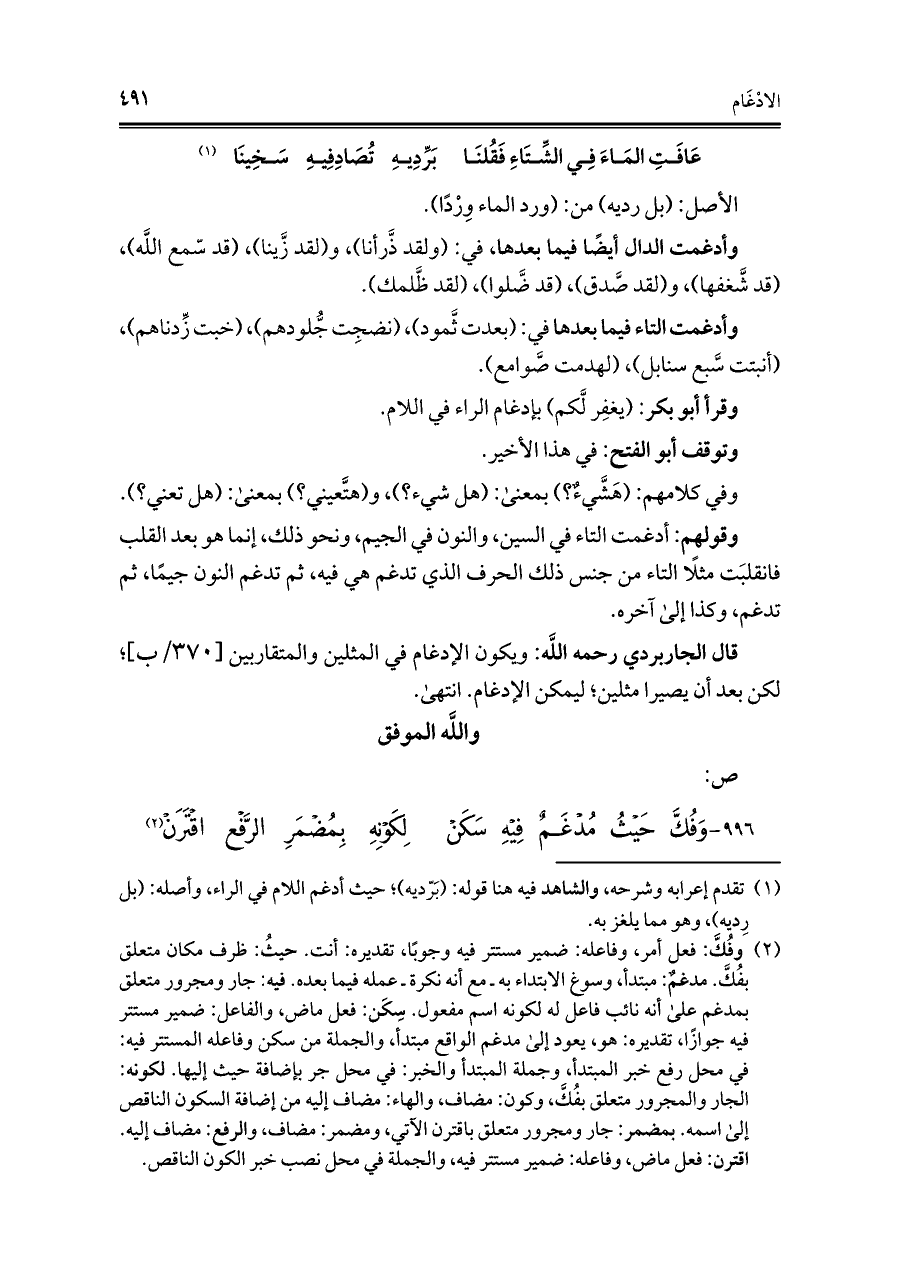 الادْغَام ٤٩١
عَافَـتِ المَـاءَ فِـي الشِّـتَاءِ فَقُلنَـا بَرِّدِيـهِ تُصَادِفِيـهِ سَـخِينَا (١)
الأصل: (بل رديه) من: (ورد الماء وِرْدًا).
وأدغمت الدال أيضًا فيما بعدها، في: (ولقد ذَّرأنا)، و(لقد زَّينا)، (قد سّمع اللَّه)،
(قد شَّغفها)، و(لقد صَّدق)، (قد ضَّلوا)، (لقد ظَّلمك).
وأدغمت التاء فيما بعدها في: (بعدت ثَّمود)، (نضجِت جُّلودهم)، (خبت زِّدناهم)،
(أنبتت سَّبع سنابل)، (لهدمت صَّوامع).
وقرأ أبو بكر: (يغفِر لَّكم) بإدغام الراء في اللام.
وتوقف أبو الفتح: في هذا الأخير.
وفي كلامهم: (هَشَّيءٌ؟) بمعنىٰ: (هل شيء؟)، و(هتَّعيني؟) بمعنىٰ: (هل تعني؟).
وقولهم: أدغمت التاء في السين، والنون في الجيم، ونحو ذلك، إنما هو بعد القلب
فانقلبَت مثلًا التاء من جنس ذلك الحرف الذي تدغم هي فيه، ثم تدغم النون جيمًا، ثم
تدغم، وكذا إلىٰ آخره.
قال الجاربردي رحمه اللَّه: ويكون الإدغام في المثلين والمتقاربين [٣٧٠/ ب]؛
لكن بعد أن يصيرا مثلين؛ ليمكن الإدغام. انتهىٰ.
واللَّه الموفق
ص:
٩٩٦-وَفُكَّ حَيْثُ مُدْغَـمٌ فِيْهِ سَكَنْ لِكَوْنِهِ بِمُضْمَرِ الرَّفْعِ اقْتَرَنْ(٢)
(١) تقدم إعرابه وشرحه، والشاهد فيه هنا قوله: (بَرّديه)؛ حيث أدغم اللام في الراء، وأصله: (بل
رِديه)، وهو مما يلغز به.
(٢) وفُكَّ: فعل أمر، وفاعله: ضمير مستتر فيه وجوبًا، تقديره: أنت. حيثُ: ظرف مكان متعلق
بفُكَّ. مدغمٌ: مبتدأ، وسوغ الابتداء به ـ مع أنه نكرة ـ عمله فيما بعده. فيه: جار ومجرور متعلق
بمدغم علىٰ أنه نائب فاعل له لكونه اسم مفعول. سِكَن: فعل ماض، والفاعل: ضمير مستتر
فيه جوازًا، تقديره: هو، يعود إلىٰ مدغم الواقع مبتدأ، والجملة من سكن وفاعله المستتر فيه:
في محل رفع خبر المبتدأ، وجملة المبتدأ والخبر: في محل جر بإضافة حيث إليها. لكونه:
الجار والمجرور متعلق بفُكَّ، وكون: مضاف، والهاء: مضاف إليه من إضافة السكون الناقص
إلىٰ اسمه. بمضمر: جار ومجرور متعلق باقترن الآتي، ومضمر: مضاف، والرفع: مضاف إليه.
اقترن: فعل ماض، وفاعله: ضمير مستتر فيه، والجملة في محل نصب خبر الكون الناقص.